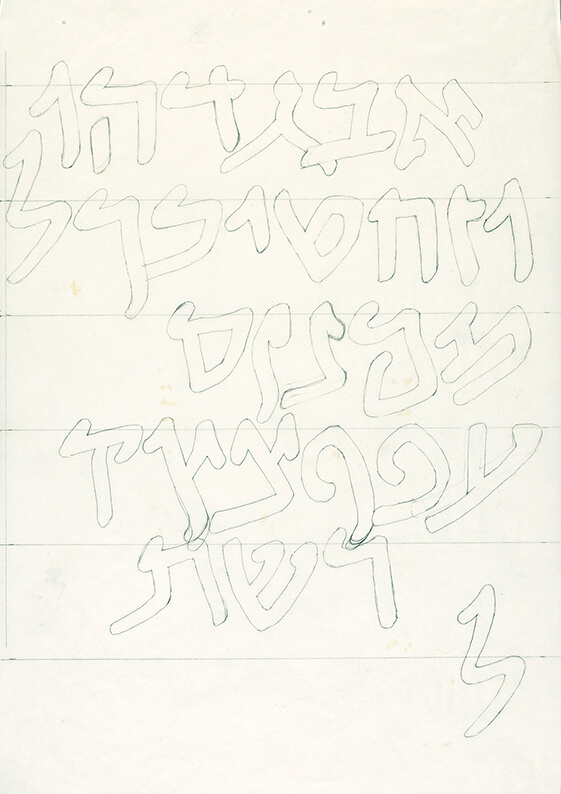 אבגדהו
וזחטיכךל
מםנןס
עפףצץק
רשת
ל